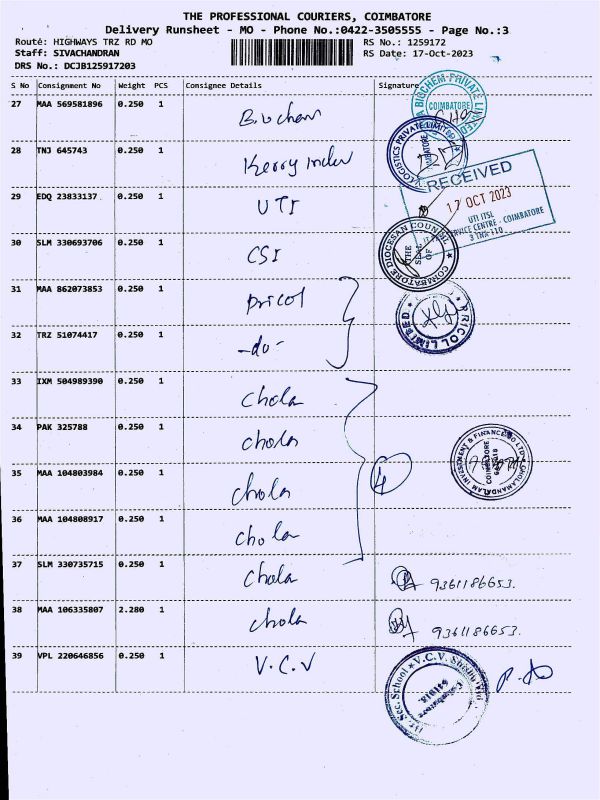 THE PROFESSIONAL COURIERS, COIMBATORE
Delivery Runsheet - MO - Phone No.:0422-3505555 - Page No.:3
Route: HIGHWAYS TRZ RD MO RS No.: 1259172
Staff: SIVACHANDRAN RS Date: 17-Oct-2023
DRS No.: DCJB125917203
S No Consignment No Weight PCS Consignee Details Signature
27 MAA 569581896 0.250 1 Biochem
BIOCHEM PRIVATE LIMITED COIMBATORE
28 TNJ 645743 0.250 1 Kerry Indev
LOGISTICS PRIVATE LIMITED
29 EDQ 23833137 0.250 1 UTI
RECEIVED
17 OCT 2023
UTI ITSL
SERVICE CENTRE - COIMBATORE
30 SLM 330693706 0.250 1 CSI
COIMBATORE DIOCESAN COUNCIL THE SEAL OF
31 MAA 862073853 0.250 1 Pricol
PRICOL LIMITED
32 TRZ 51074417 0.250 1 -do-
33 IXM 504989390 0.250 1 Chola
34 PAK 325788 0.250 1 chola
CHOLAMANDALAM INVESTMENT & FINANCE CO LTD COIMBATORE
35 MAA 104803984 0.250 1 chola 4
36 MAA 104808917 0.250 1 chola
37 SLM 330735715 0.250 1 Chola 9361186653.
38 MAA 106335807 2.280 1 chola 9361186653.
39 VPL 220646856 0.250 1 V.C.V
V.C.V. Sec. School Coimbatore